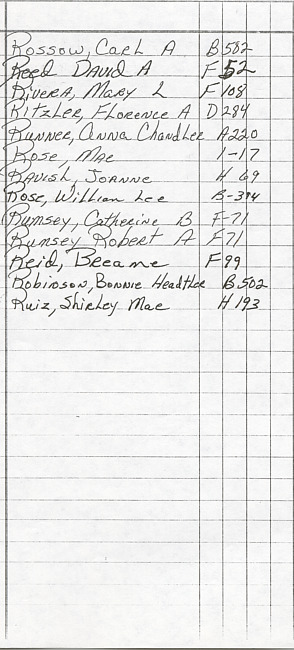 Rossow, Carl A B 502
Reed David A F 52
Rivera, Mary L F 108
Ritzler, Florence A D 284
Runner, Anna Chandler A 220
Rose, Mae 1-17
Ravish, Joanne H 69
Rose, William Lee B-394
Rumsey, Catherine B F-71
Rumsey Robert A F 71
Reid, Became F 99
Robinson, Bonnie Headtlee B 502
Ruiz, Shirley Mae H 193